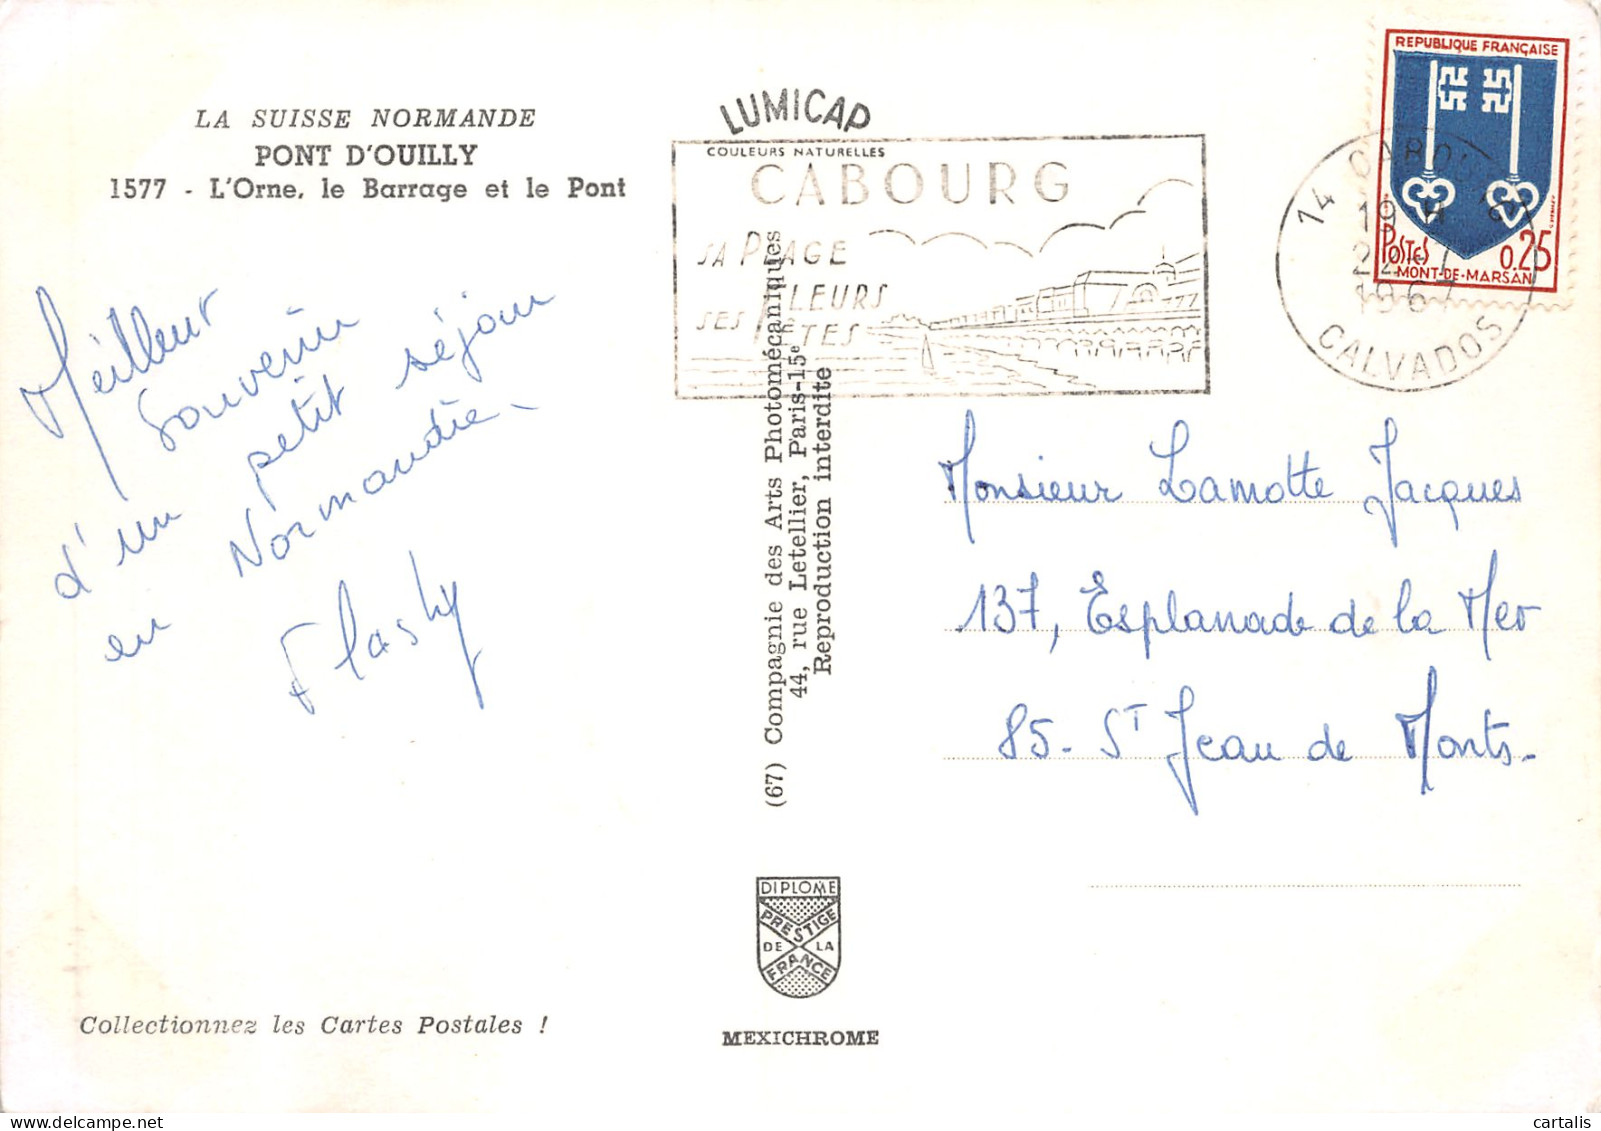 LA SUISSE NORMANDE
PONT D'OUILLY
1577 - L'Orne, le Barrage et le Pont
Meilleur
Souvenir
d'un petit séjour
en Normandie -
Flashy
Collectionnez les Cartes Postales !
LUMICAP
COULEURS NATURELLES
CABOURG
SA PLAGE
FLEURS
SES FÊTES
(67) Compagnie des Arts Photomécaniques
44, rue Letellier, Paris-15e
Reproduction interdite
DIPLOME
PRESTIGE
DE LA
FRANCE
MEXICHROME
REPUBLIQUE FRANÇAISE
POSTES 0.25
MONT-DE-MARSAN
14 CABO
19 H
22-7
1967
CALVADOS
Monsieur Lamotte Jacques
137, Esplanade de la Mer
85 - ST Jean de Monts -
cartalis